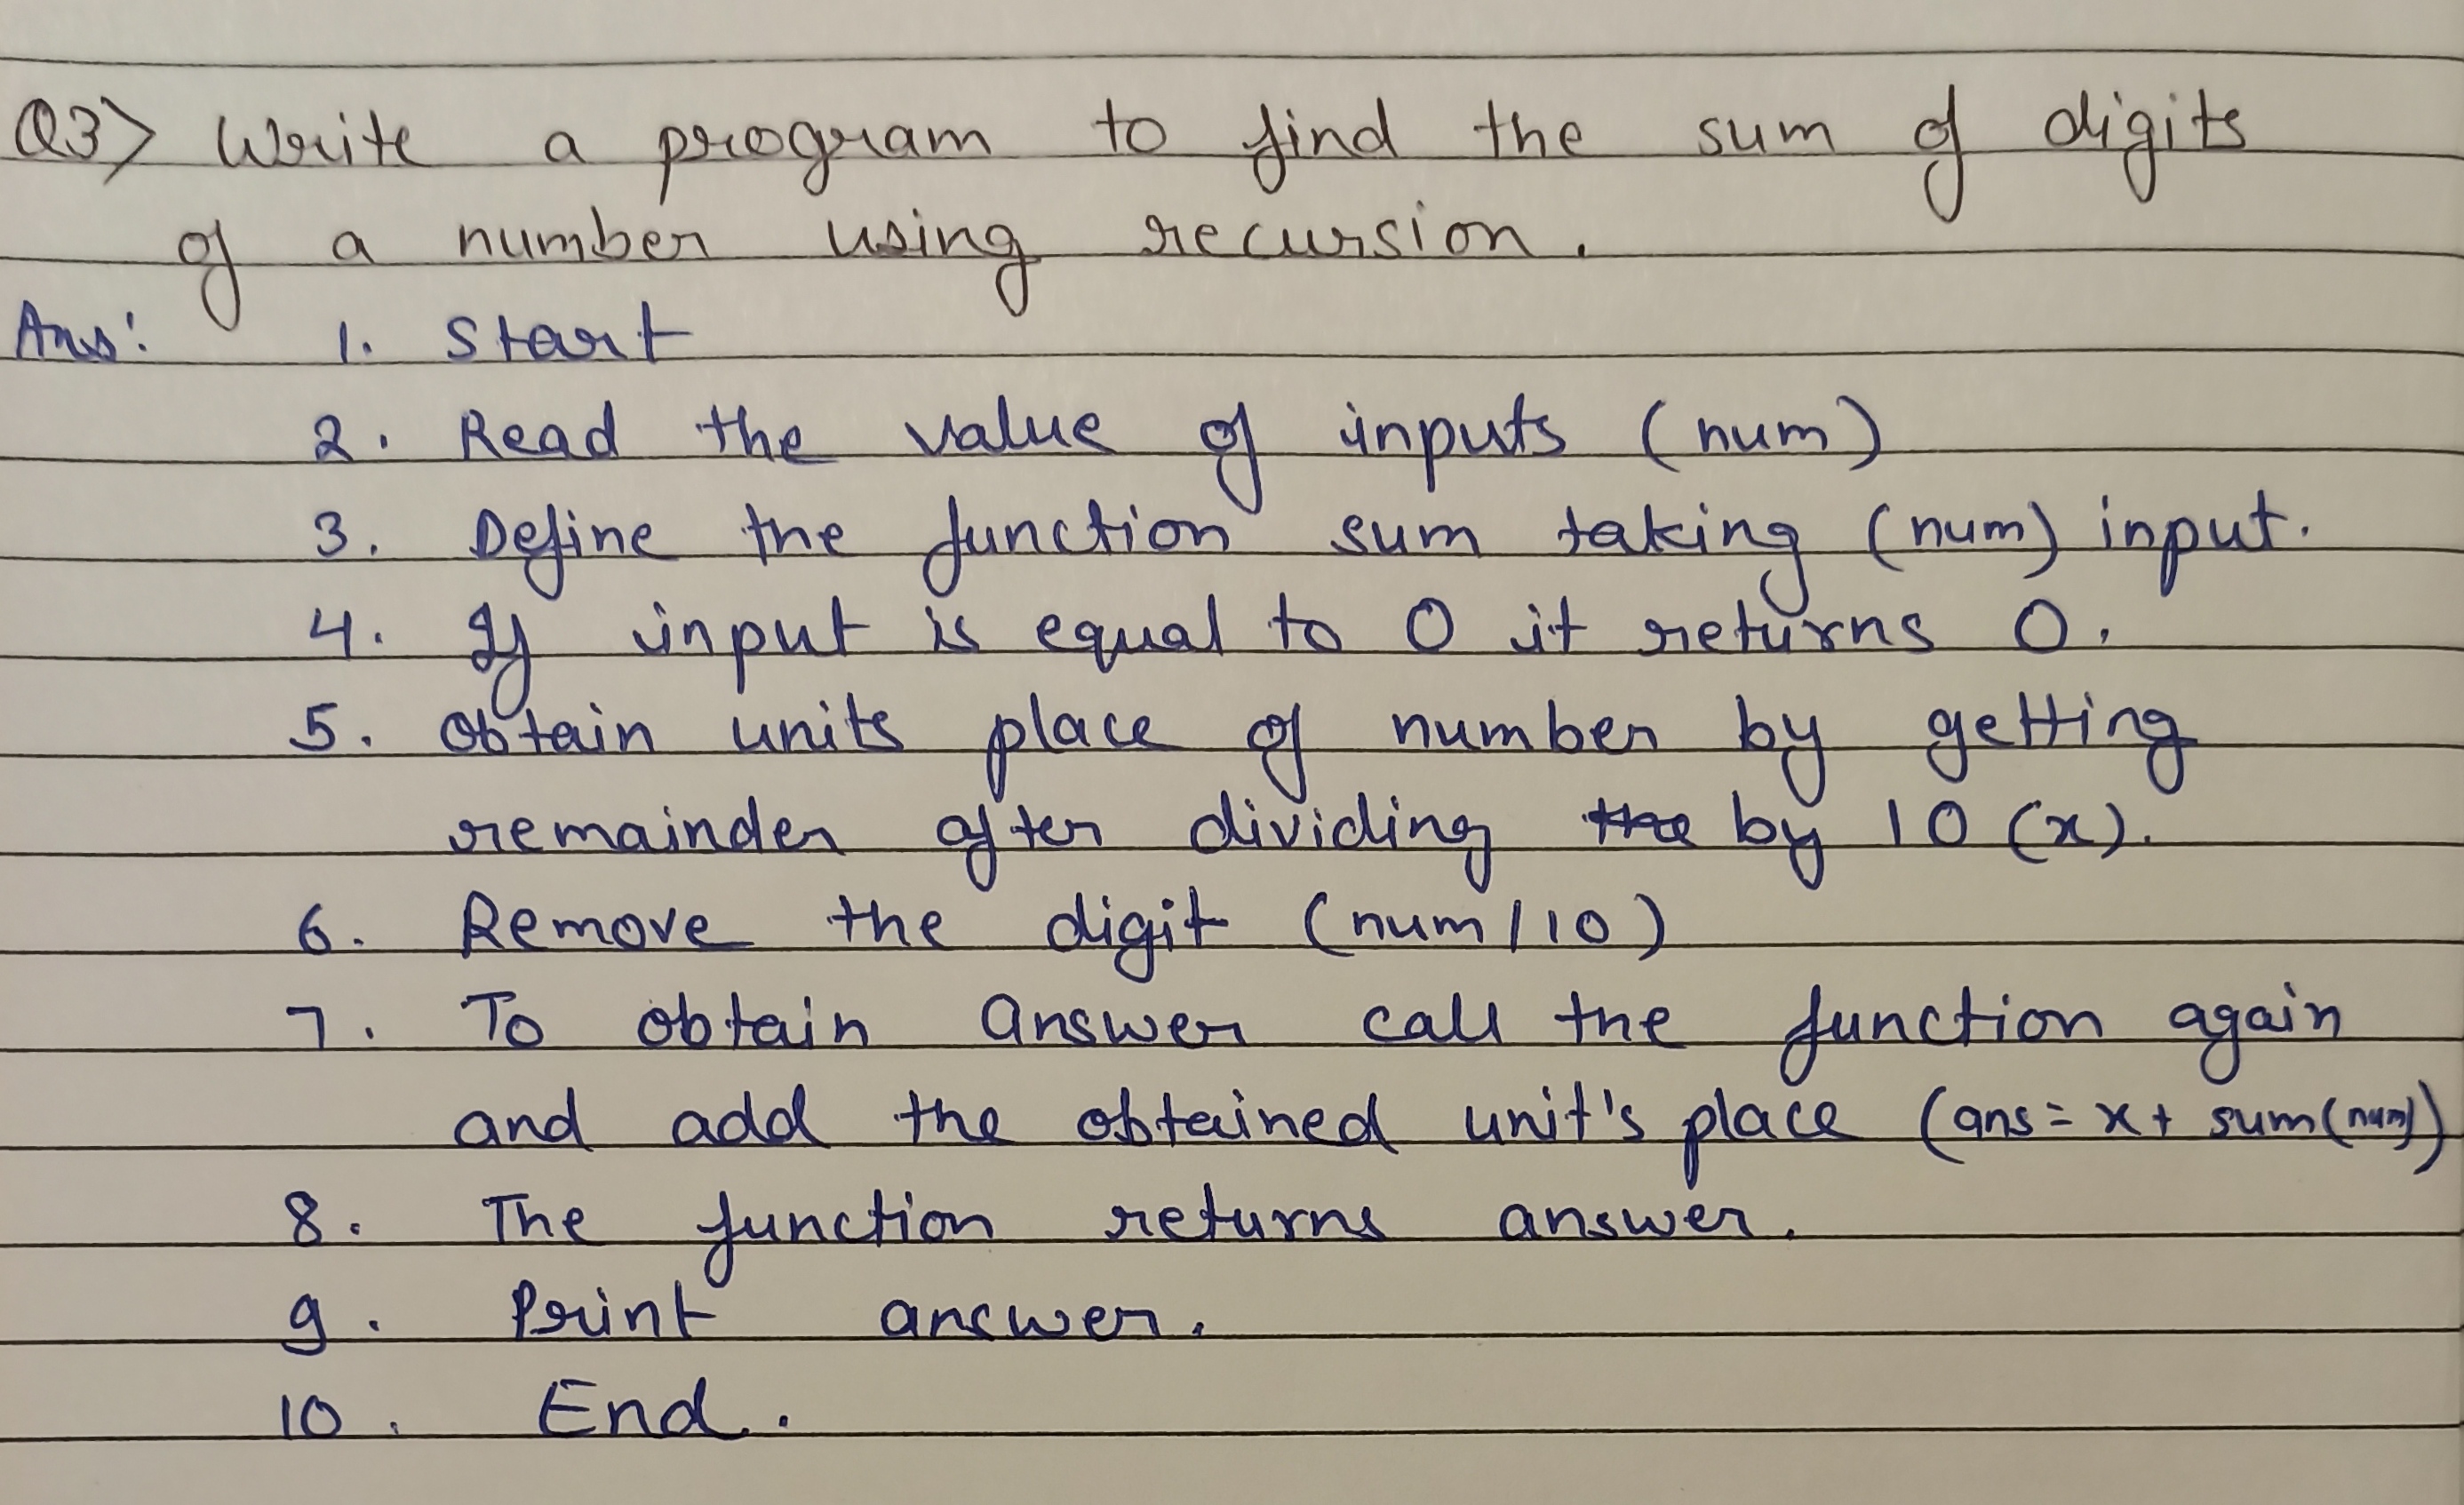 Q3> Write a program to find the sum of digits
of a number using recursion.
Ans: 1. Start
2. Read the value of inputs (num)
3. Define the function sum taking (num) input.
4. If input is equal to 0 it returns 0.
5. Obtain units place of number by getting
remainder after dividing the by 10 (x).
6. Remove the digit (num/10)
7. To obtain answer call the function again
and add the obtained unit's place (ans = x + sum(num))
8. The function returns answer.
9. Print answer.
10. End.